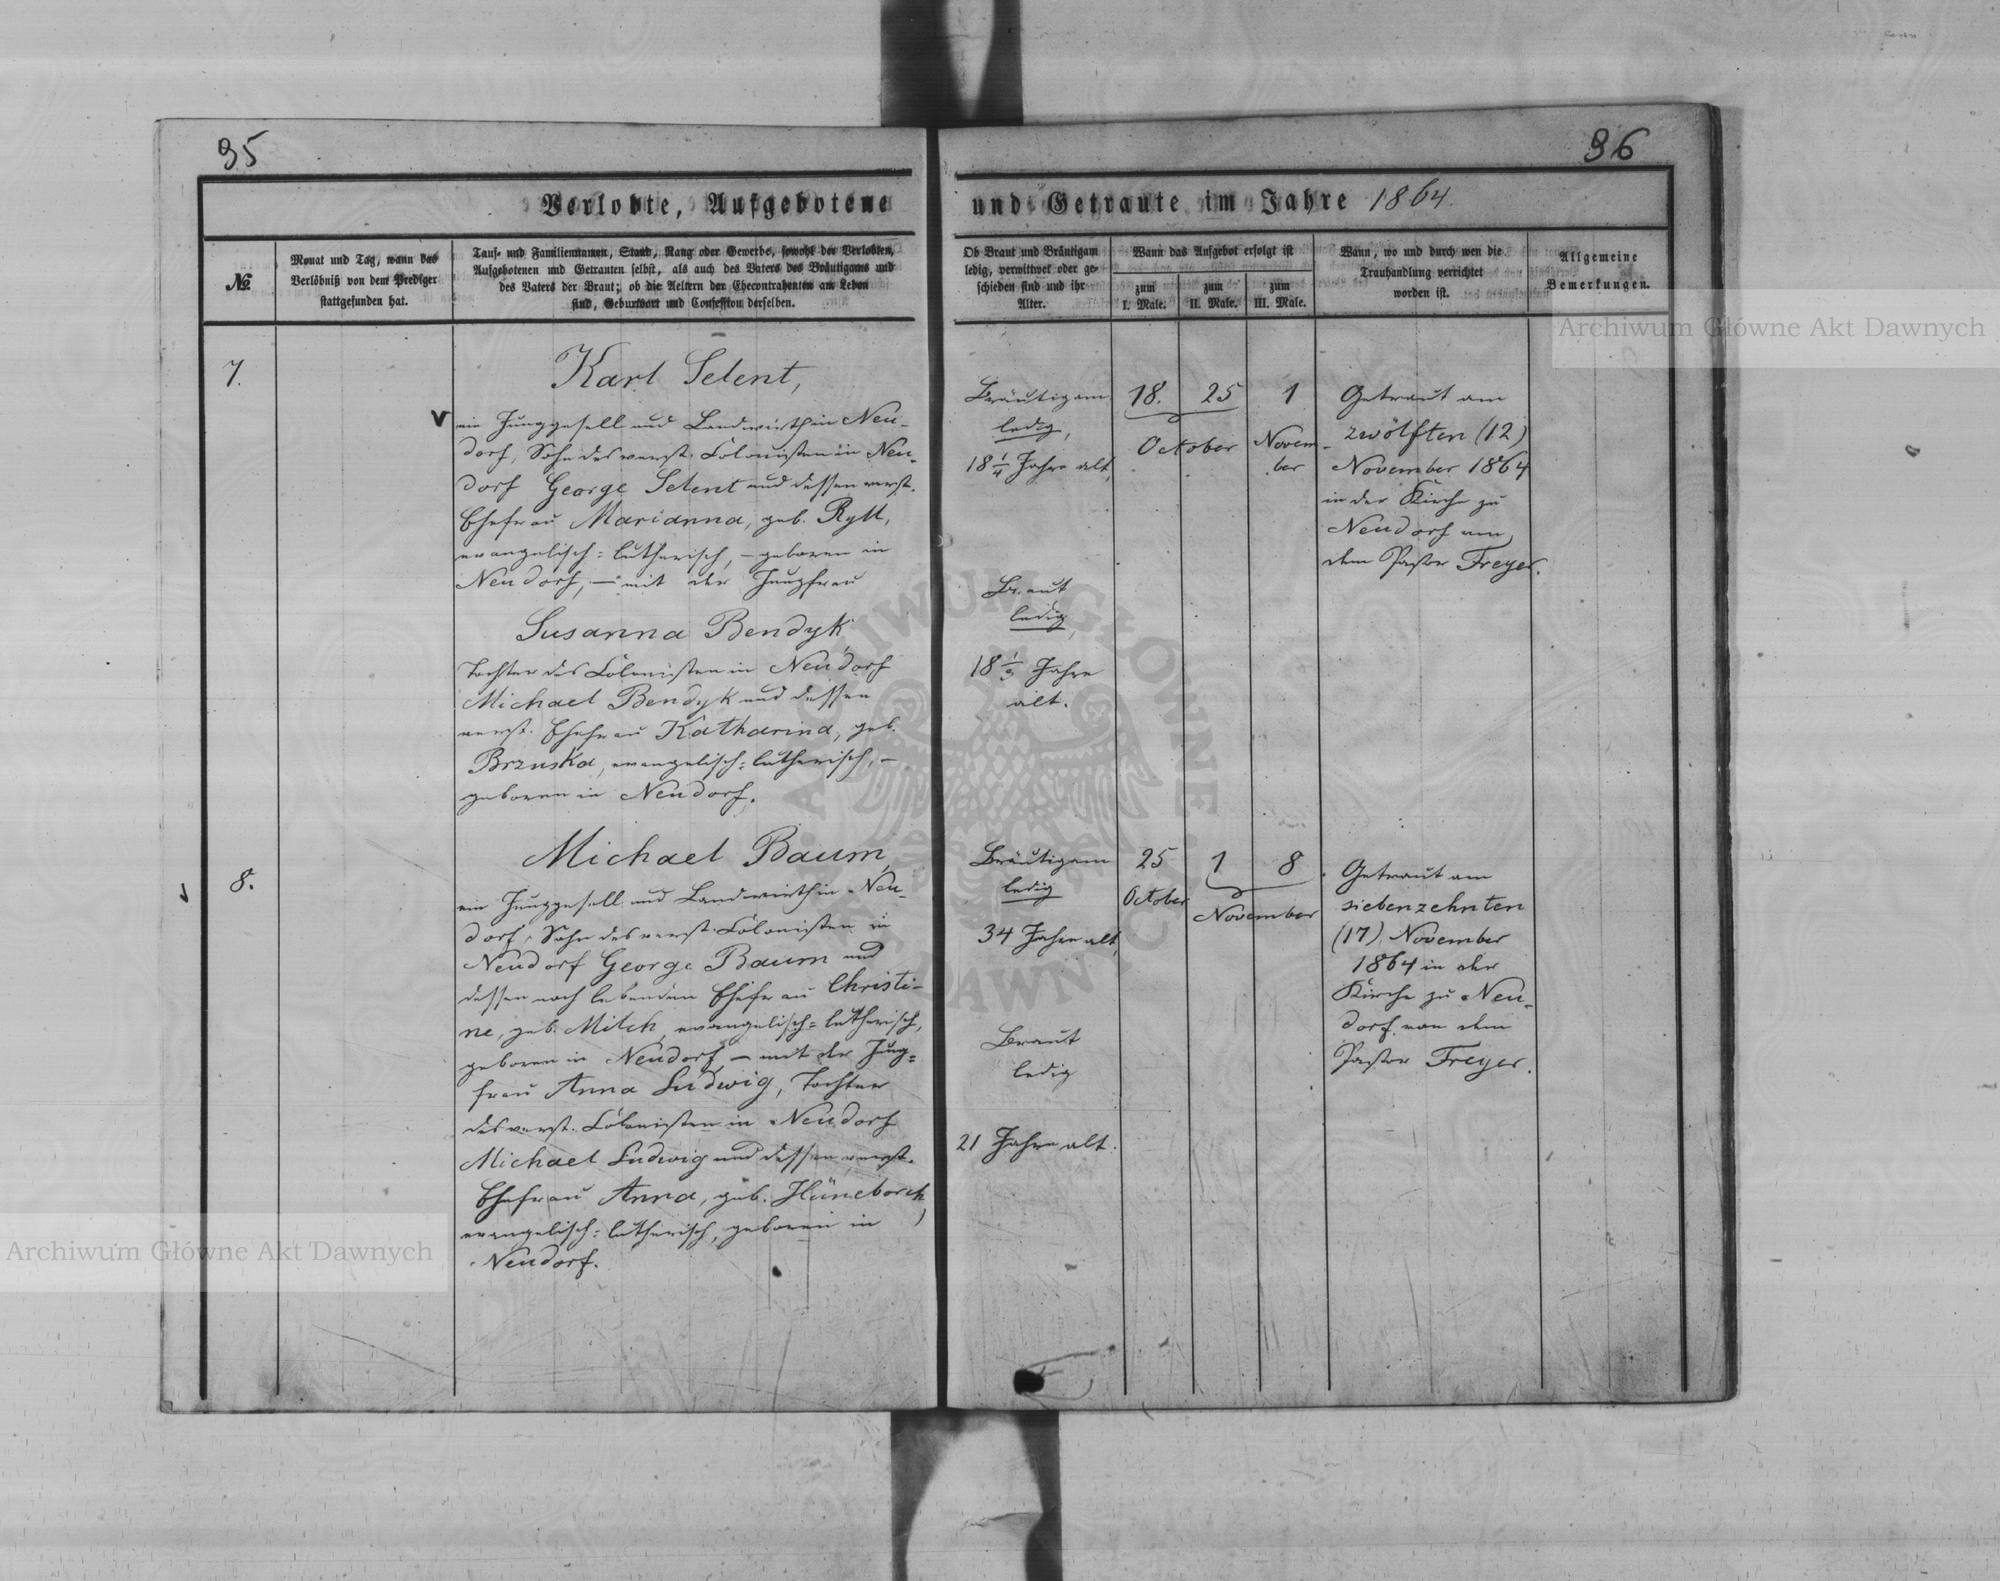 95
96
Verlobte, Aufgebotene und Getraute im Jahre 1864.
№
Monat und Tag, wann das
Verlöbniß von dem Prediger
stattgefunden hat.
Tauf- und Familiennamen, Stand, Rang oder Gewerbe, sowohl der Verlobten,
Aufgebotenen und Getrauten selbst, als auch des Vaters des Bräutigams und
des Vaters der Braut; ob die Aeltern der Ehecontrahenten am Leben
sind, Geburtsort und Confession derselben.
Ob Braut und Bräutigam
ledig, verwittwet oder ge-
schieden sind und ihr
Alter.
Wann das Aufgebot erfolgt ist
zum
I. Male.
zum
II. Male.
zum
III. Male.
Wann, wo und durch wen die
Trauhandlung verrichtet
worden ist.
Allgemeine
Bemerkungen.
7.
Karl Selent,
ein Junggesell und Landwirth in Neu-
dorf, Sohn des verst. Colonisten in Neu-
dorf George Selent und dessen verst.
Ehefrau Marianna, geb. Ryll,
evangelisch-lutherisch, – geboren in
Neudorf, – mit der Jungfrau
Susanna Bendyk
Tochter des Colonisten in Neudorf
Michael Bendyk und dessen
verst. Ehefrau Katharina, geb.
Brzuska, evangelisch-lutherisch, –
geboren in Neudorf.
Bräutigam
ledig,
18 1/4 Jahre alt,
Braut
ledig,
18 Jahre
alt.
18. 25
October
1
Novem-
ber
Getraut am
zwölften (12)
November 1864
in der Kirche zu
Neudorf von
dem Pastor Freyer.
8.
Michael Baum,
ein Junggesell und Landwirth in Neu-
dorf, Sohn des verst. Colonisten in
Neudorf George Baum und
dessen noch lebenden Ehefrau Christi-
ne, geb. Milch, evangelisch-lutherisch,
geboren in Neudorf, – mit der Jung-
frau Anna Ludwig, Tochter
des verst. Colonisten in Neudorf
Michael Ludwig und dessen verst.
Ehefrau Anna, geb. Hüneborch,
evangelisch-lutherisch, geboren in
Neudorf.
Bräutigam
ledig
34 Jahre alt,
Braut
ledig
21 Jahre alt.
25
October
1 8
November
Getraut am
siebenzehnten
(17) November
1864 in der
Kirche zu Neu-
dorf von dem
Pastor Freyer.
Archiwum Główne Akt Dawnych
Archiwum Główne Akt Dawnych
ARCHIWUM GŁÓWNE AKT DAWNYCH